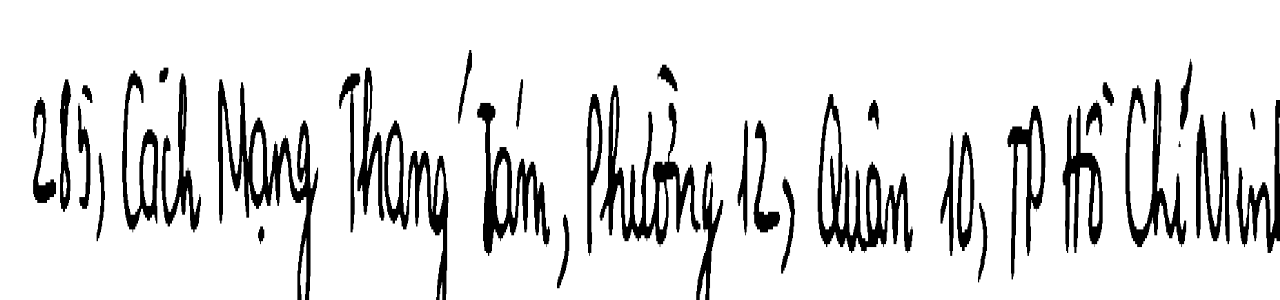 285, Cách Mạng Tháng Tám, Phường 12, Quận 10, TP Hồ Chí Minh